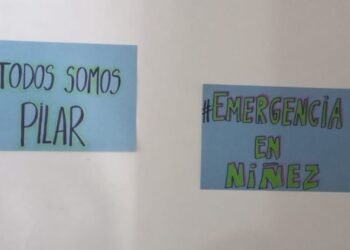 TODOS SOMOS
PILAR
#EMERGENCIA
EN
NIÑEZ